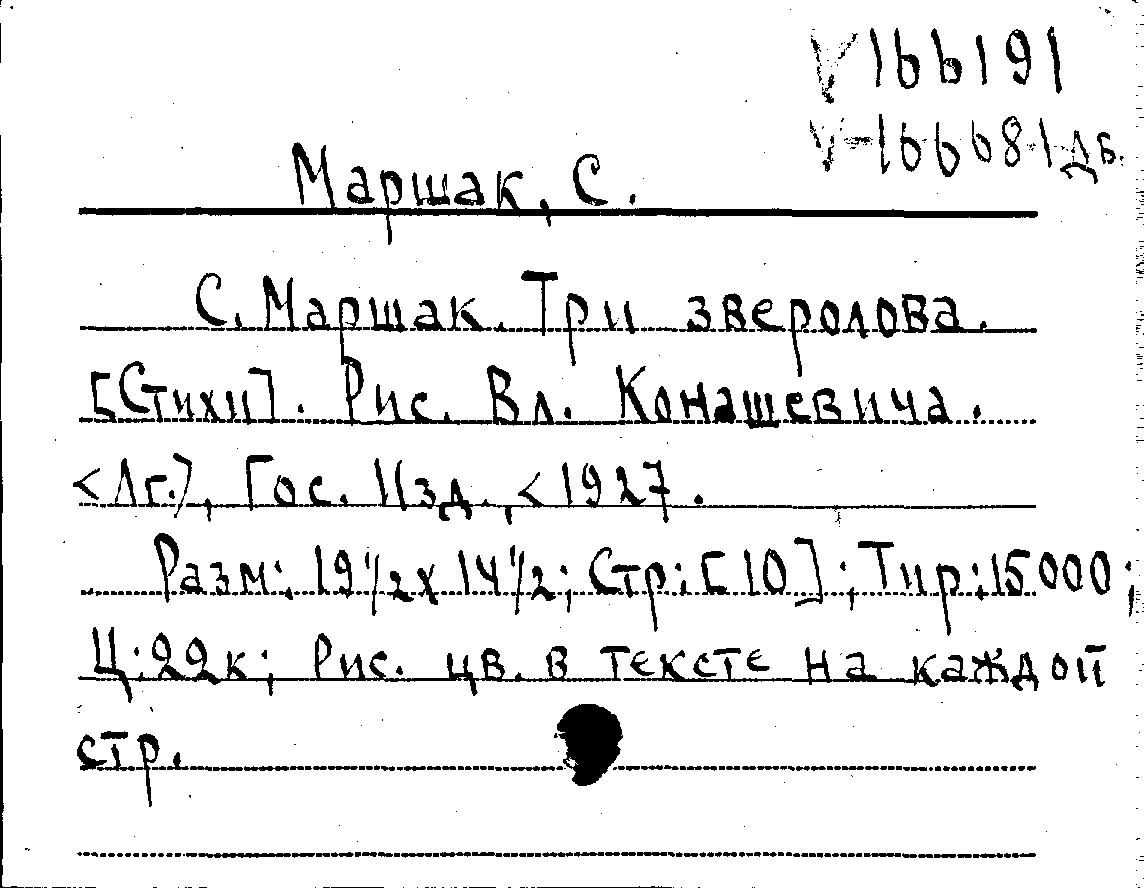 V 166191
V-166681 дб.
Маршак, С.
С. Маршак. Три зверолова.
[Стихи]. Рис. Вл. Конашевича.
<Лг.], Гос. Изд., <1927.
Разм: 19 1/2 x 14 1/2; Стр: [10]; Тир: 15000;
Ц: 22к; Рис. цв. в тексте на каждой
стр.